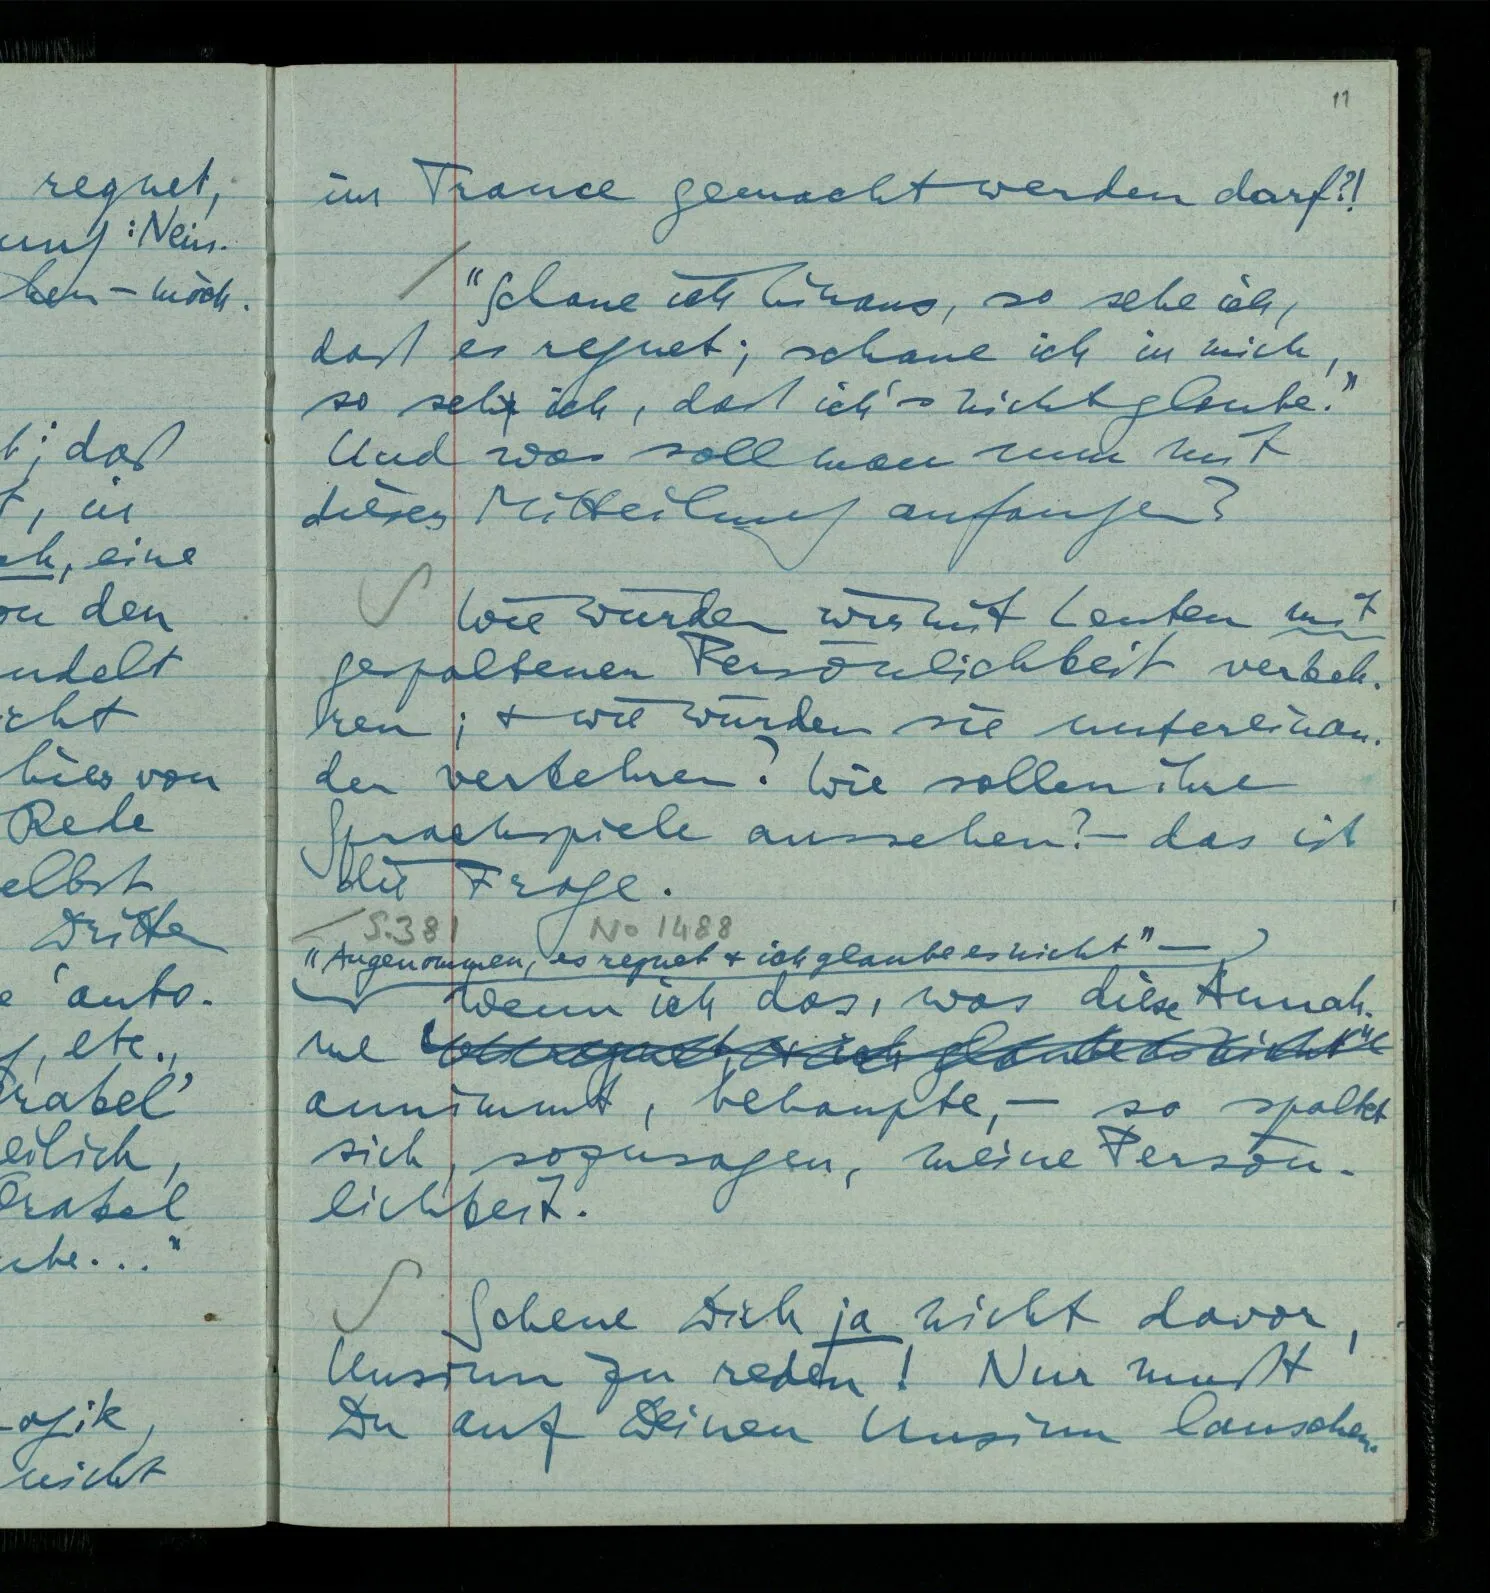 regnet,
: Nein.
hen – möch.
; daß
t, in
ch, eine
on den
ndelt
cht
hier von
Rede
elbst
Dritten
e 'auto-
, etc.,
rakel'
eilich,
Orakel
che..."
Logik,
nicht
11
im Trance gemacht werden darf?!
"Schaue ich hinaus, so sehe ich,
daß es regnet; schaue ich in mich,
so sehe ich, daß ich's nicht glaube."
Und was soll man nun mit
dieser Mitteilung anfangen?
Wie würden wir mit Leuten mit
gespaltenen Persönlichkeit verkeh-
ren; + wie würden sie untereinan-
der verkehren? Wie sollen ihre
Sprachspiele aussehen? – das ist
die Frage.
S. 381 No 1488
"Angenommen, es regnet + ich glaube es nicht" —
Wenn ich das, was diese Annah-
me es regnet, + ich glaube es nicht"
annimmt, behaupte, – so spaltet
sich, sozusagen, meine Persön-
lichkeit.
Scheue Dich ja nicht davor,
Unsinn zu reden! Nur mußt
Du auf Deinen Unsinn lauschen.